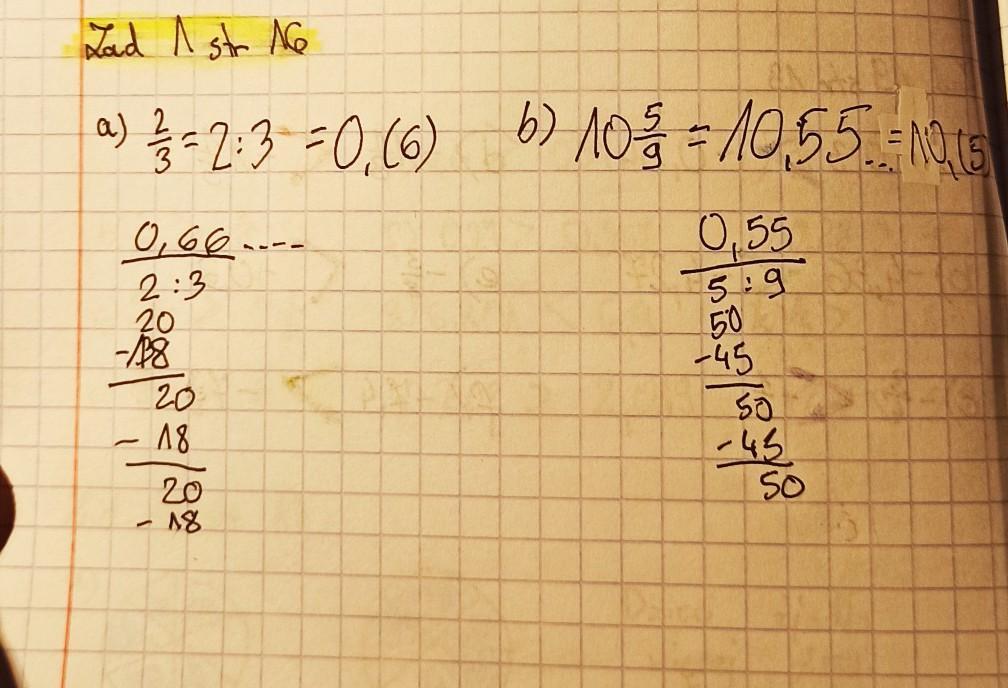 Zad 1 str 16
a) 2/3 = 2:3 = 0,(6) b) 10 5/9 = 10,55... = 10,(5)
0,66....
2:3
20
-18
20
- 18
20
- 18
0,55
5:9
50
-45
50
-45
50